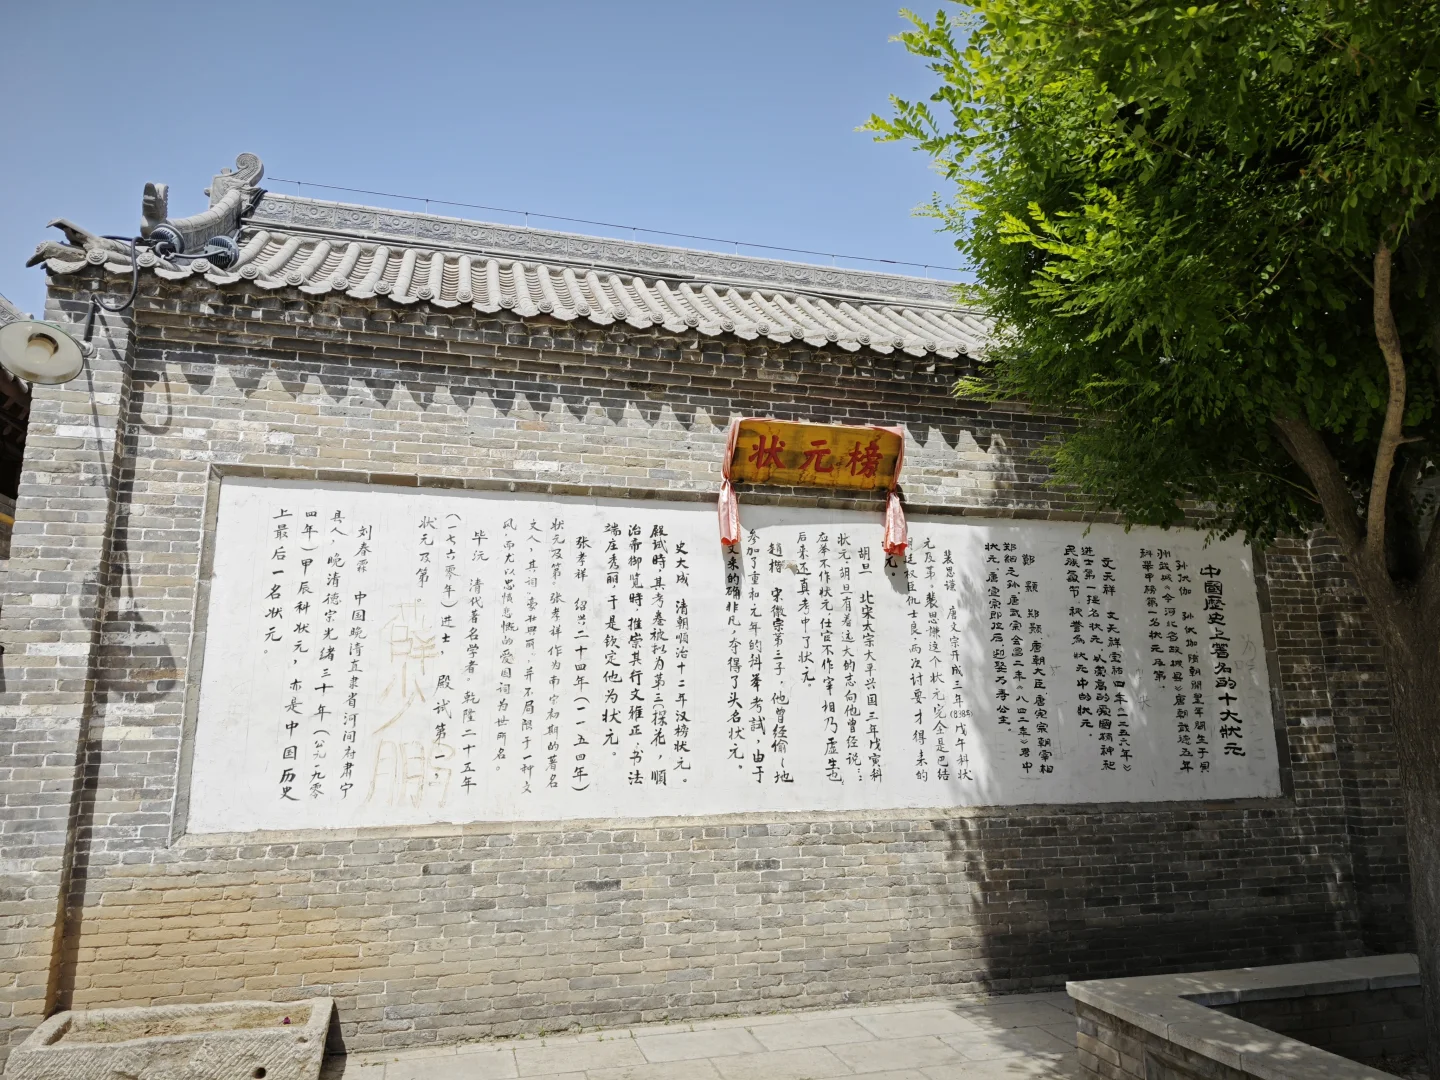 状元榜
中國歷史上著名的十大狀元
孙伏伽 孙伏伽隋朝開皇年間生于貝
州武城(今河北省故城县)唐朝武德五年
科举甲榜第一名状元及第。
文天祥 文天祥宝祐四年(一二五六年)
进士第一提名状元,从崇高的爱國精神和
民族氣节被誉為状元中的状元。
鄭颢 郑颢唐朝大臣唐宣宗朝宰相
郑絪之孙唐武宗会昌二年(八四二年)男中
状元,唐宣宗即位后迎娶万寿公主。
裴思谦 唐文宗开成三年(838年)戊午科状
元及第,裴思谦这个状元完全是巴结
权臣仇士良,两次讨要才得来的
元。
胡旦 北宋太宗太平兴国三年戊寅科
状元,胡旦有着远大的志向他曾经说:
应举不作状元,仕宦不作宰相乃虚生也,
后来还真考中了状元。
趙楷 宋徽宗第三子,他曾经偷偷地
参加了重和元年的科举考試,由于
文采的确非凡,夺得了头名状元。
史大成 清朝順治十二年汉榜状元。
殿试時其考卷被拟为第三(探花,順
治帝御览時,推崇其行文雅正,书法
端庄秀丽于是钦定他为状元。
张孝祥 绍兴二十四年(一一五四年)
状元及第。张孝祥作为南宋初期的著名
文人,其词豪壮典丽,并不局限于一种文
风,而尤以忠愤悲慨的爱国词为世所名。
毕沅 清代著名学者。乾隆二十五年
(一七六零年)进士,殿试第一
状元及第。
刘春霖 中国晚清直隶省河间府肃宁
县人,晚清德宗光绪三十年(公元一九零
四年)甲辰科状元,亦是中国历史
上最后一名状元。